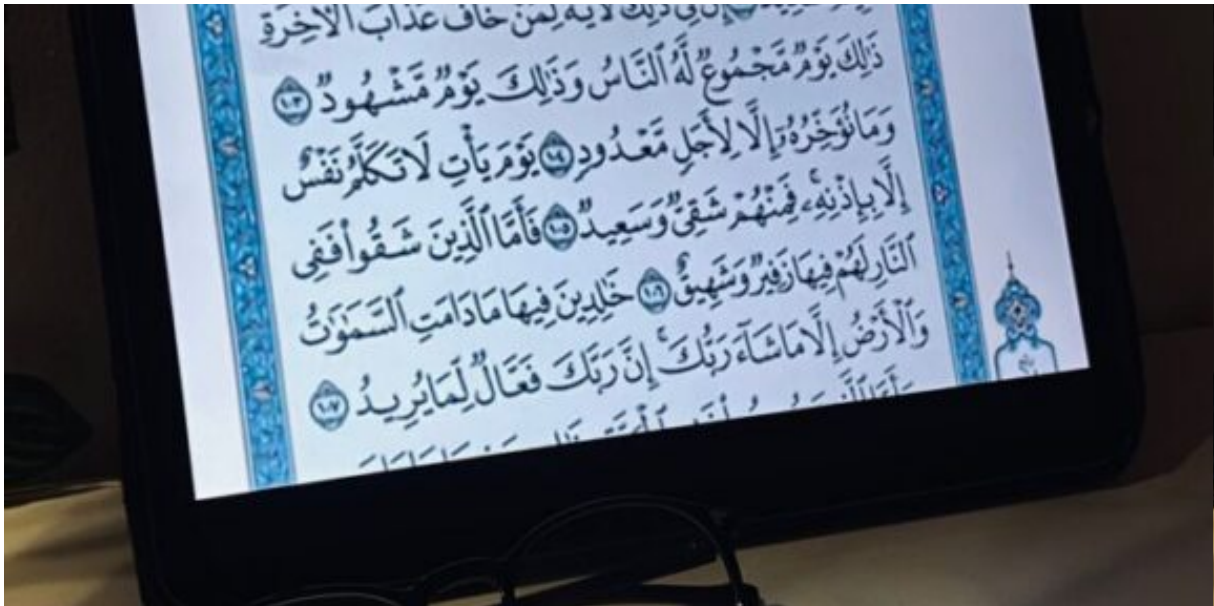 إِنَّ فِي ذَٰلِكَ لَآيَةً لِّمَنْ خَافَ عَذَابَ الْآخِرَةِ
ذَٰلِكَ يَوْمٌ مَّجْمُوعٌ لَّهُ النَّاسُ وَذَٰلِكَ يَوْمٌ مَّشْهُودٌ ١٠٣
وَمَا نُؤَخِّرُهُ إِلَّا لِأَجَلٍ مَّعْدُودٍ ١٠٤ يَوْمَ يَأْتِ لَا تَكَلَّمُ نَفْسٌ
إِلَّا بِإِذْنِهِ ۚ فَمِنْهُمْ شَقِيٌّ وَسَعِيدٌ ١٠٥ فَأَمَّا الَّذِينَ شَقُوا فَفِي
النَّارِ لَهُمْ فِيهَا زَفِيرٌ وَشَهِيقٌ ١٠٦ خَالِدِينَ فِيهَا مَا دَامَتِ السَّمَاوَاتُ
وَالْأَرْضُ إِلَّا مَا شَاءَ رَبُّكَ ۚ إِنَّ رَبَّكَ فَعَّالٌ لِّمَا يُرِيدُ ١٠٧